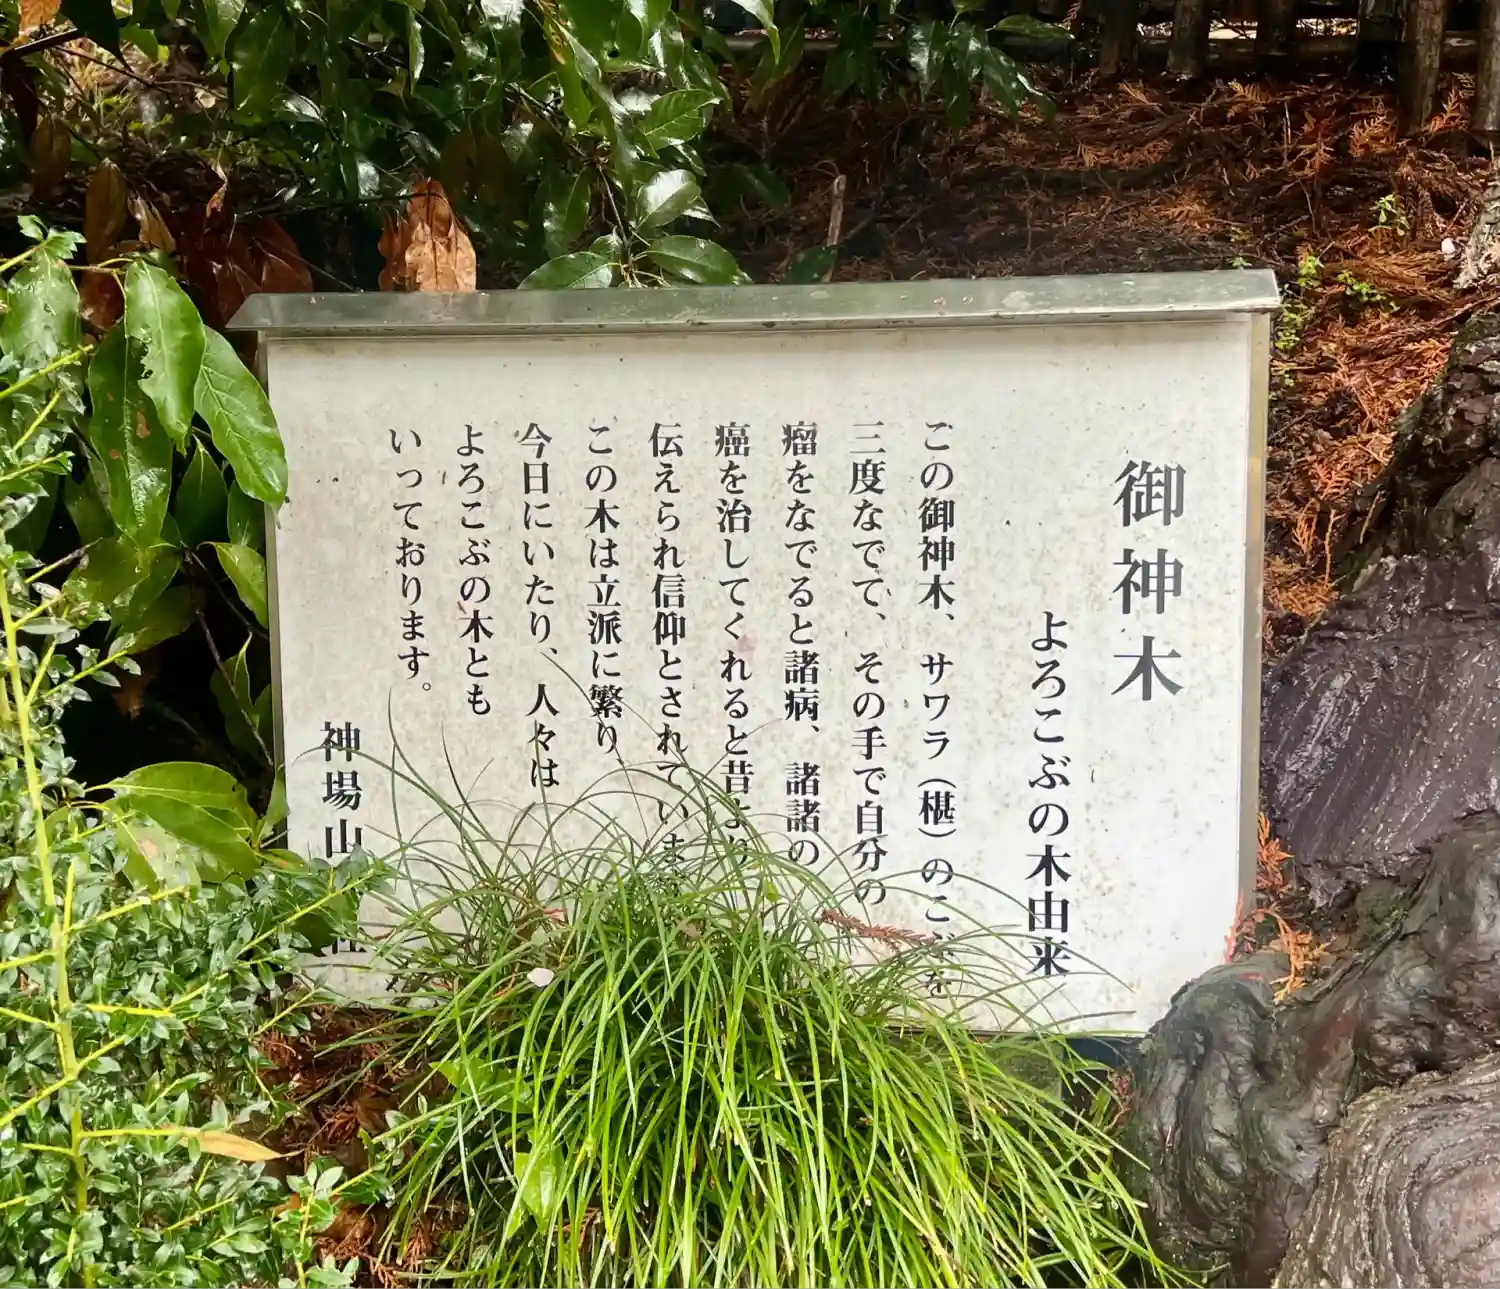 御神木
よろこぶの木由来
この御神木、サワラ（椹）のこぶを
三度なでて、その手で自分の
瘤をなでると諸病、諸諸の
癌を治してくれると昔より
伝えられ信仰とされています
この木は立派に繁り
今日にいたり、人々は
よろこぶの木とも
いっております。
神場山